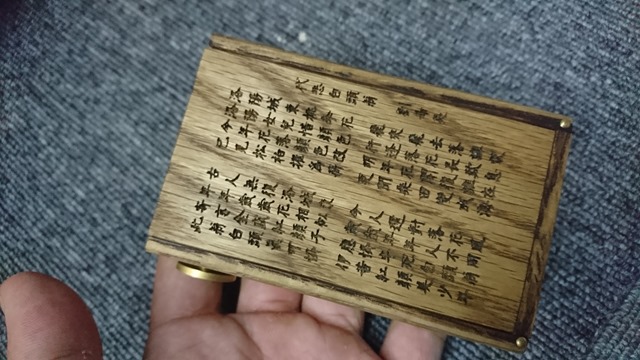 代悲白頭翁
劉希夷
洛陽城東桃李花 飛來飛去落誰家
洛陽女兒惜顏色 行逢落花長歎息
今年花落顏色改 明年花開復誰在
已見松柏摧為薪 更聞桑田變成海
古人無復洛城東 今人還對落花風
年年歲歲花相似 歲歲年年人不同
寄言全盛紅顏子 應憐半死白頭翁
此翁白頭真可憐 伊昔紅顏美少年